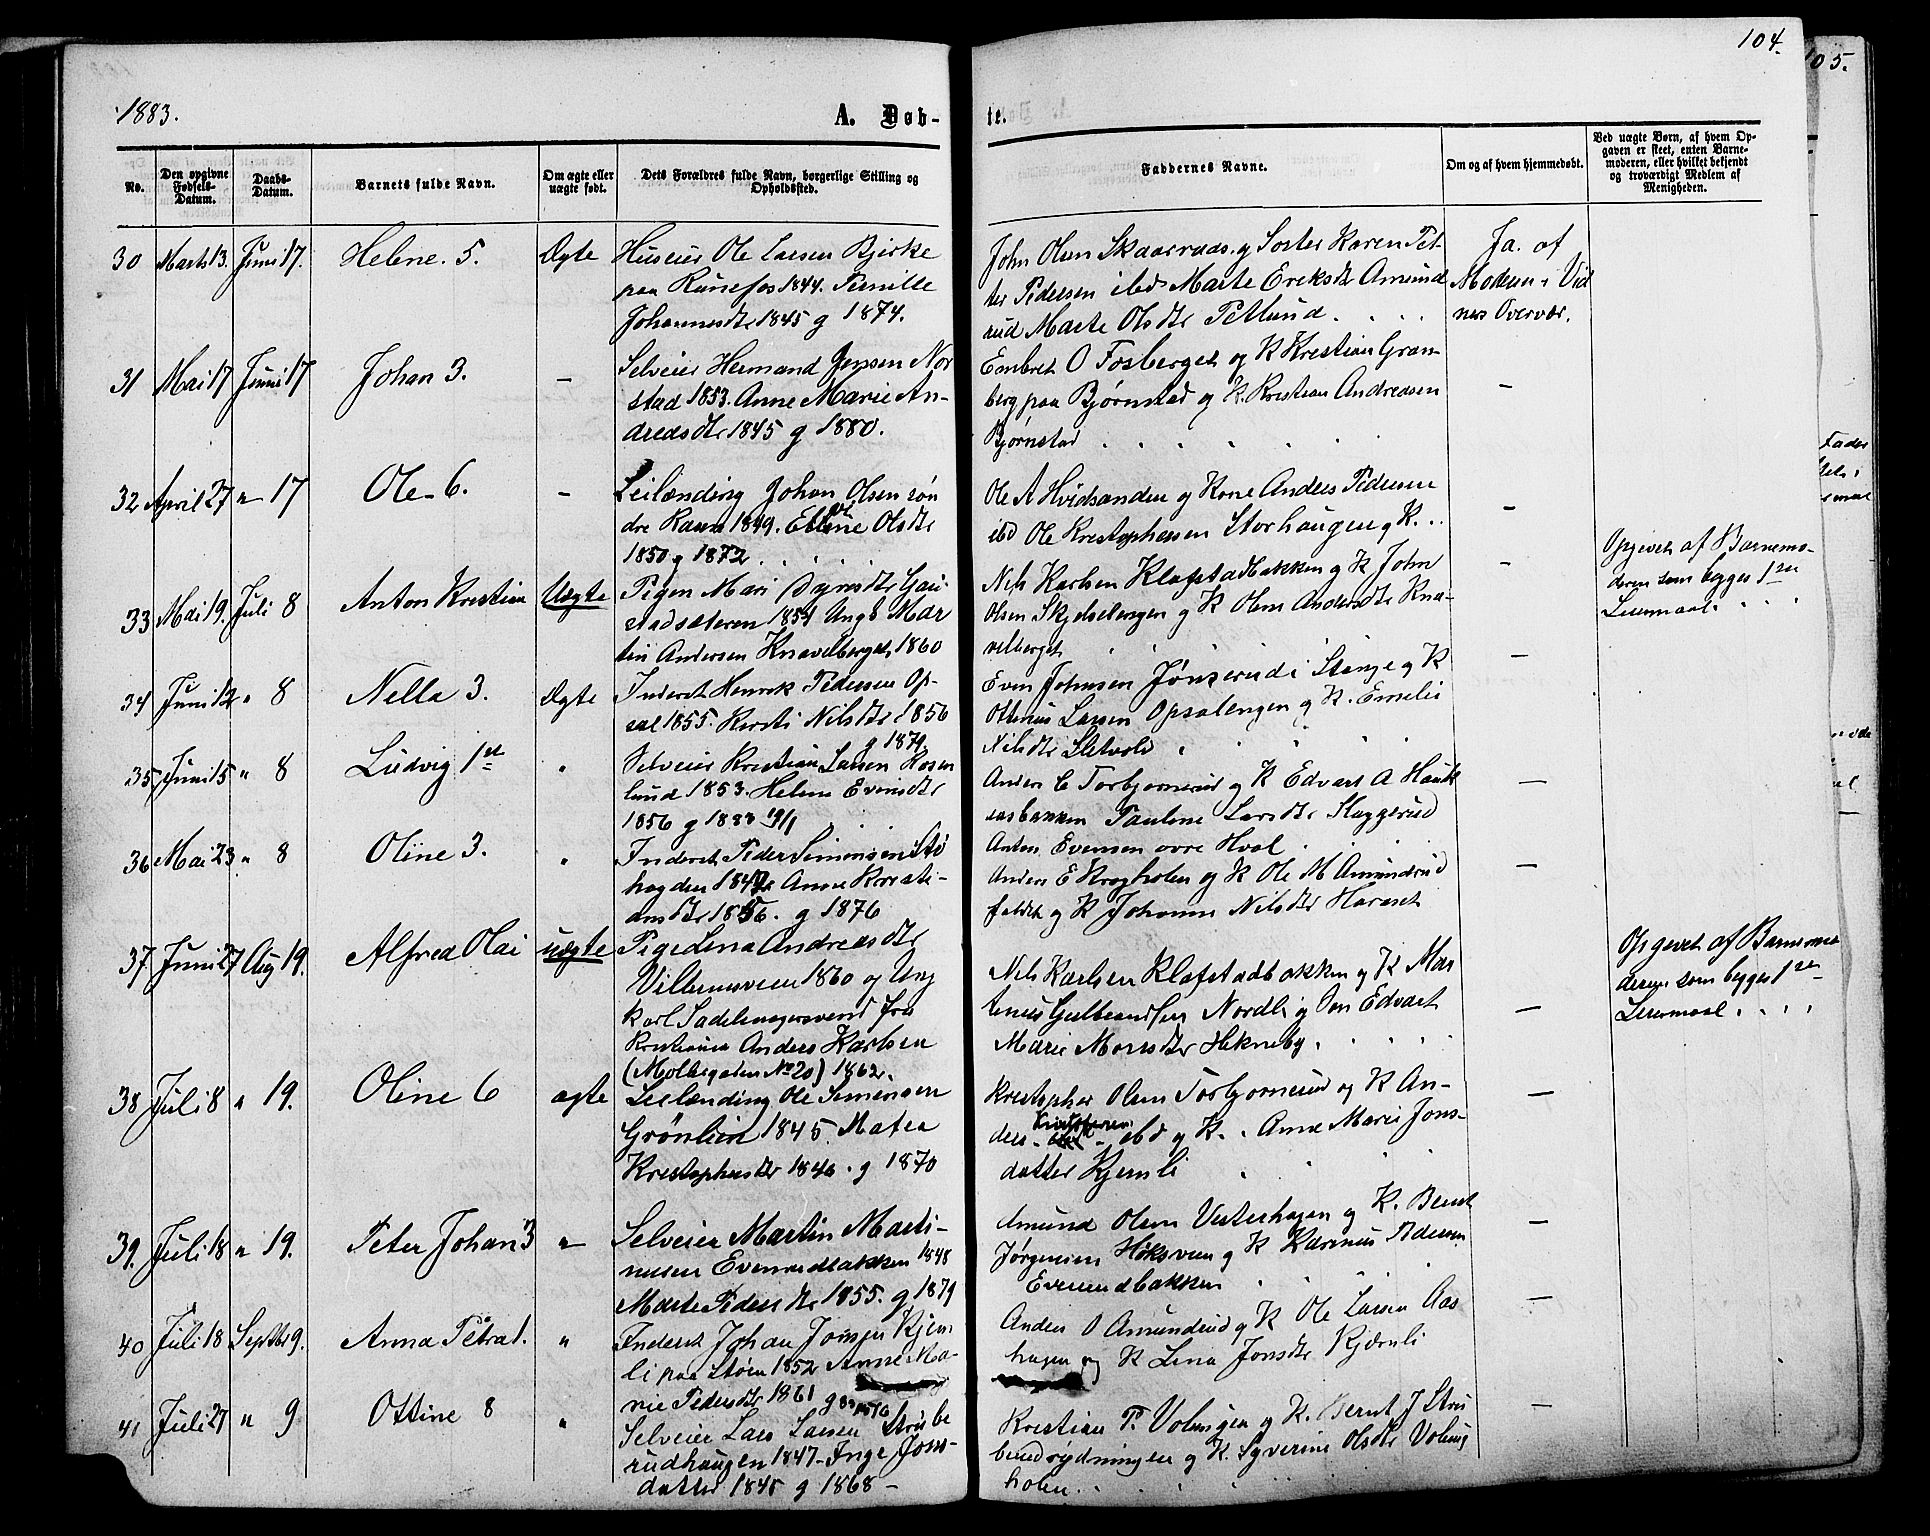 104.
105.
1883.
A. Døb-
te.
No.
Den opgivne Fødsels-Datum.
Daabs-Datum.
Barnets fulde Navn.
Om ægte eller uægte født.
Dets Forældres fulde Navn, borgerlige Stilling og Opholdssted.
Faddernes Navne.
Om og af hvem hjemmedøbt.
Ved uægte Børn, af hvem Opgaven er skeet, enten Barnemoderen, eller hvilket bekjendt og troværdigt Medlem af Menigheden.
30 Marts 13. Juni 17. Helene. 5. Ægte
Huseier Ole Larsen Bjerke
paa Runefos 1844. Pernille
Johannesdtr 1845 g 1874.
John Olsen Skaarraas. g Søster Karen Pet-
ter Pedersen ibd Marte Ereksdt Amund
rud Marte Olsdtr Petlund. . . .
Ja. af
Moderen i Vid
nes Overvær.
31 Mai 17 Juni 17 Johan 3. —
Selveier Hermand Jensen Nor
stad 1853. Anne Marie An-
dredsdtr 1845 g 1880.
Embret O Fosberget og K Krestian Gran-
berg paa Bjørnstad og K. Krestian Andreasen
Bjørnstad . . . . . .
—
32 April 27 " 17 Ole 6. —
Leilænding Johan Olsen søn
dre Raaen 1849. Elline Olsdtr
1850 g 1872 . . .
Ole A Hvidsanden g Kone Anders Pedersen
ibd Ole Krestophersen Storhaugen g K. . .
—
33 Mai 19. Juli 8 Anton Krestian Uægte
Pigen Mari Gau-
stadsæteren 1854 Ungk Mar-
tin Andersen Knavelberget 1860
Nels Karlsen Klafstadbakken g K John
Olsen Skjelselengen g K Olea Andersdtr Kna-
velberget . .
—
Opgivet af Barnemo-
deren som begges 1ste
Leiermaal. . . .
34 Juni 12 " 8 Nella 3. Ægte
Inderst Henrik Pedersen Op-
sal 1855. Kersti Nilsdtr 1856
g 1879
Even Johnsen Jønserud i Stange g K
Ottenius Larsen Opsalengen g K. Emelie
Nilsdtr Sletvold . . . .
—
35 Juni 15 " 8 Ludvig 1st "
Selveier Krestian Larsen Rosen
lund 1853. Helene Evensdtr
1856 g 1883 19/1
Anders C Torbjørnsrud g K Edvart A Hauk
aasbakken Pauline Larsdtr Skyggerud
Anton Evensen øvre Hval . .
—
36 Mai 23 " 8 Oline 3. "
Inderst Peder Simensen Stø
hagden 1847 Anne Kresti-
ansdtr 1856. g 1876
Anders E Krogholen og K Ole M Amundsrud
faldet og K Johanne Nilsdtr Haraset
—
37 Juni 27 Aug 19. Alfred Olai uægte
Pige Lena Andreasdtr
Villumsveen 1860 og Ung
Karl Sadelmagersvend fra
Kristiania Anders Karlsen
(Møllegaten No 20) 1862.
Nels Karlsen Klafstadbakken g K Mar
tenus Gulbrandsen Nordli g Søn Edvart
Marie Monsdtr Hekneby. . . .
—
Opgivet af Barnemo
deren som begges 1ste
Leiermaal. . . .
38 Juli 8 " 19. Oline 6 ægte
Leilænding Ole Simensen
Grønlien 1845. Matea
Krestophersdtr 1846. g 1870
Krestopher Olsen Torbjørnsrud og K An-
ders Kristofersen ibd g K. Anne Marie Jons-
datter Kjernli . .
—
39. Juli 18 " 19. Peter Johan 3 "
Selveier Martin Marti-
nusen Evenrudbakken 1848
Marte Pedersdtr 1855. g 1879
Amund Olsen Vesterhagen g K. Bernt
Jørgensen Høksveen g K Karenus Pedersen
Evenrudbakken . . . .
—
40 Juli 18 Septbr 9. Anna Petra 1. "
Inderst Johan Jonsen Kjern
li paa Støen 1852 Anne Ma-
rie Pedersdtr 1861 g
Anders O Amundrud g K Ole Larsen Aas
hagen og K Lina Jonsdtr Kjærnli
—
41 Juli 27 " 9 Ottine 8 "
Selveier Lars Larsen Strube
rudhaugen 1847 - Inge Jons-
datter 1845 g 1868 -
Krestian P. Volungen og K. Bernt J Stru
berudrydningen g K. Syverine Olsdtr Volung
holen. . . . .
—